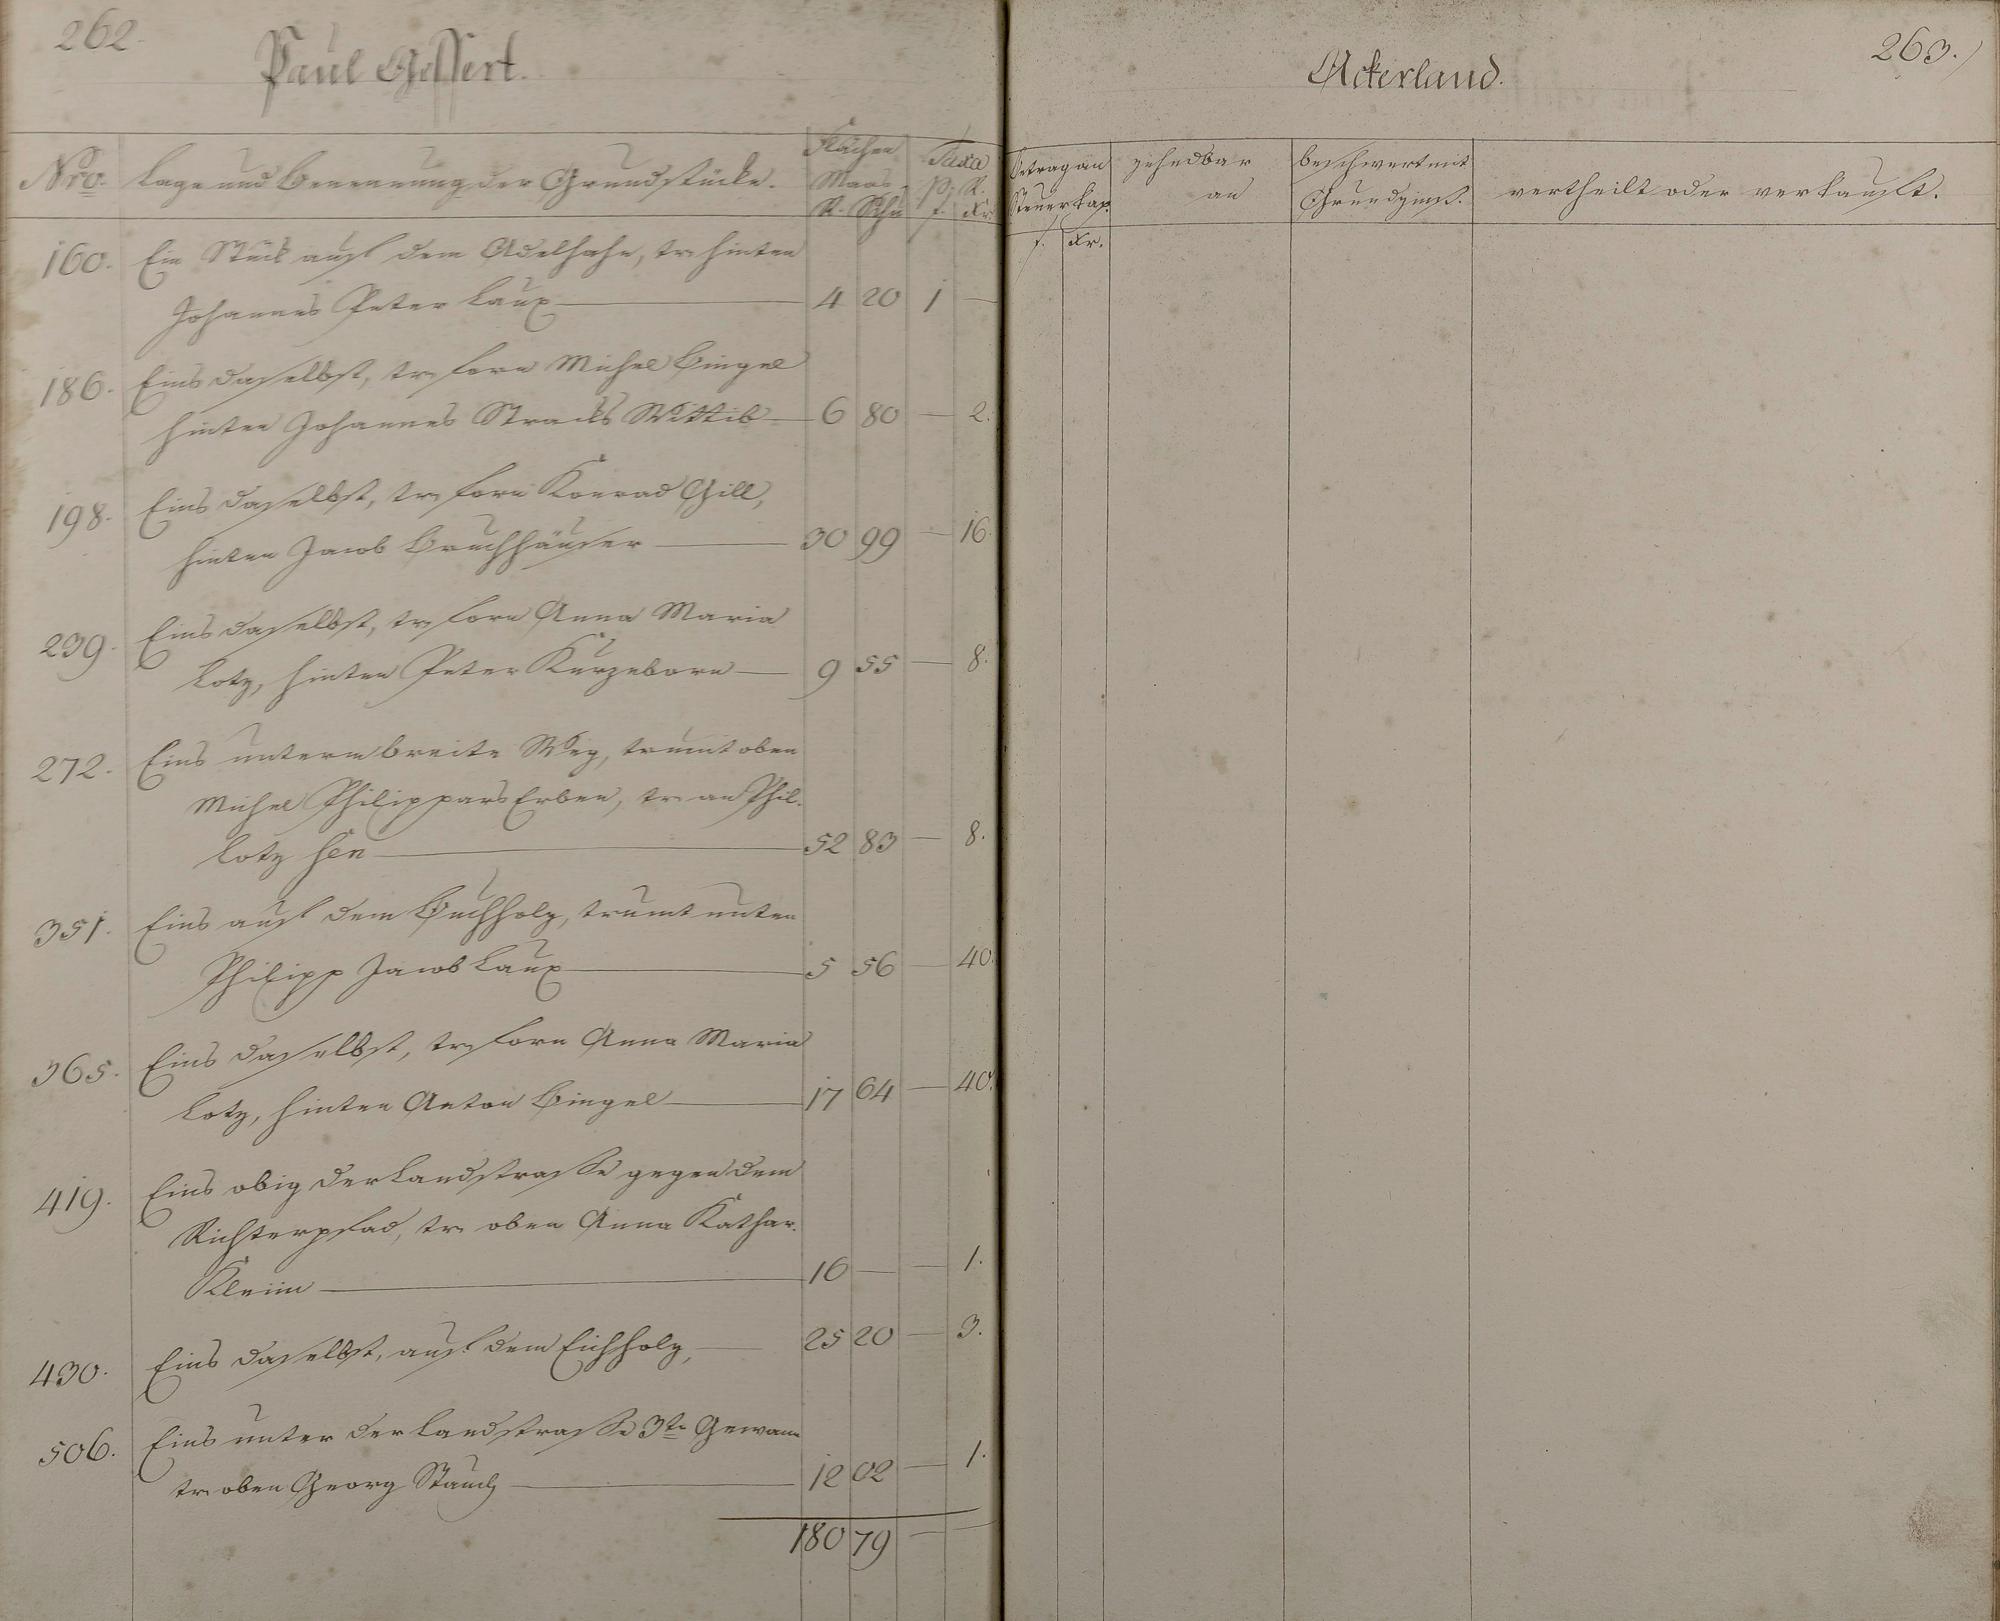 262.
Paul Gessert.
Nro. Lage und Benennung der Grundstücke. Flächen Maas R. Schu Taxa p. R. f. Xr.
160. Ein Stück auf dem Adelhahn, tr. hinten
Johannes Peter Laux — 4 20 1 —
186. Eins daselbst, tr. forn Michel Bingel
hinten Johannes Stracks Wittib — 6 80 — 2.
198. Eins daselbst, tr. forn Konrad Gill,
hinten Jacob Bruchhäuser — 30 99 — 16.
239. Eins daselbst, tr. forn Anna Maria
Lotz, hinten Peter Kurzeborn — 9 55 — 8.
272. Eins unterm breite Weg, trumt oben
Michel Philippars Erben, tr. an Phil.
Lotz sen — 52 83 — 8.
351. Eins auf dem Buchholz, trumt unten
Philipp Jacob Laux — 5 56 — 40.
365. Eins daselbst, tr. forn Anna Maria
Lotz, hinten Anton Bingel — 17 64 — 40.
419. Eins obig der Landstrasse gegen dem
Richterpfad, tr. oben Anna Kathar.
Kleim — 16 — — 1.
430. Eins daselbst, auf dem Eichholz, — 25 20 — 3.
506. Eins unter der Landstrasse 3te Gewann
tr. oben Georg Stauch — 12 02 — 1.
180 79 — —
263.
Ackerland.
Betrag an Steuerkap. f. Xr. zehndbar an beschwert mit Grundzins. vertheilt oder verkauft.